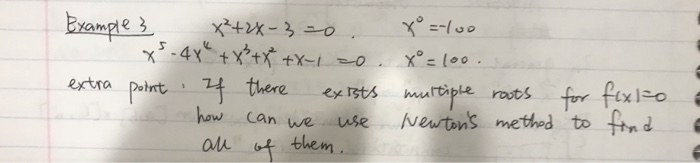 Example 3 x²+2x-3=0. x⁰=-100
x⁵-4x⁴+x³+x²+x-1=0. x⁰=100.
extra point: If there exists multiple roots for f(x)=0
how can we use Newton's method to find
all of them.